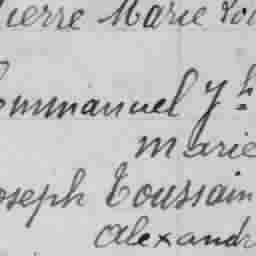 ierre Marie Lou
Emmanuel Jh
Marie
oseph Toussain
Alexandr